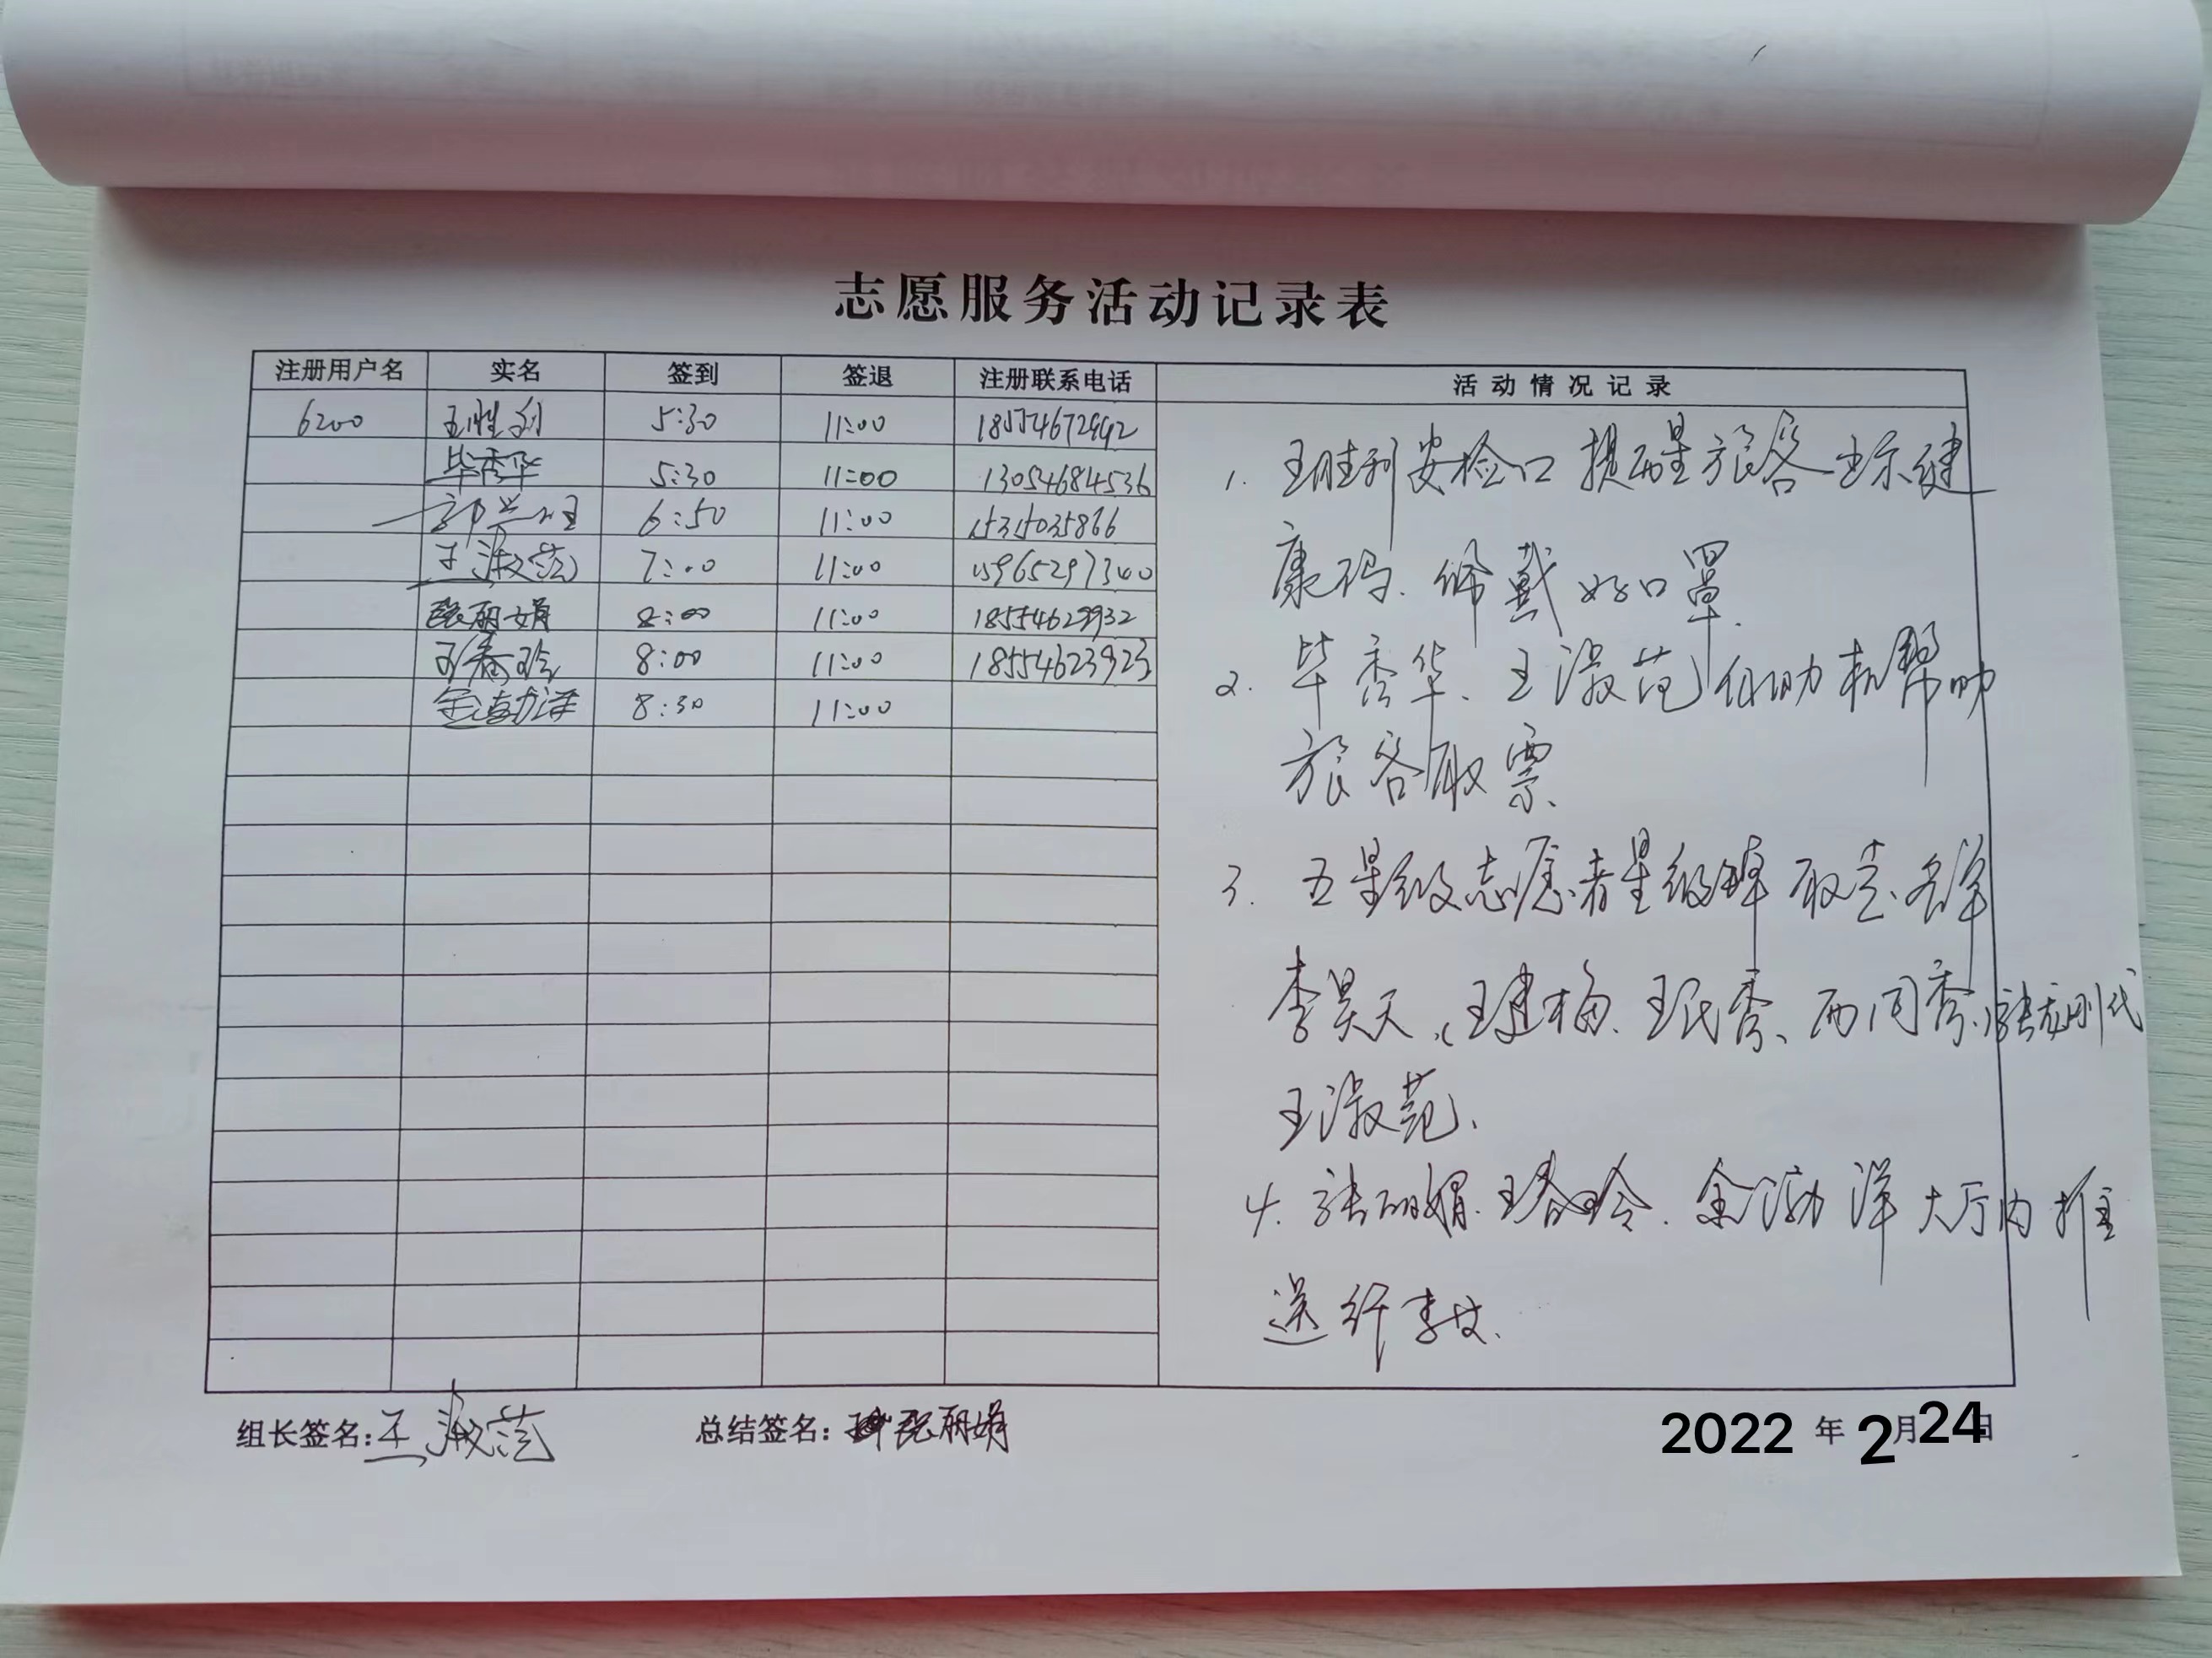 志愿服务活动记录表
注册用户名 实名 签到 签退 注册联系电话 活动情况记录
6200 王胜利 5:30 11:00 18554672992
毕秀华 5:30 11:00 13054684536
6:50 11:00 15315035866
王淑范 7:00 11:00 15965297340
张丽娟 8:00 11:00 18554629932
王春玲 8:00 11:00 18554623923
金渤洋 8:30 11:00
1. 王胜利安检口提醒旅客出示健
康码、佩戴好口罩.
2. 毕秀华、王淑范 助机帮助
旅客取票、
3. 五星级志愿者星级牌取走、名单
李昊天、王建梅、王民秀、西同秀、 代
王淑范、
4. 张丽娟、王春玲、金渤洋大厅内推
送行李攵、
组长签名: 王淑范 总结签名: 张丽娟 2022 年 2 月 24 日